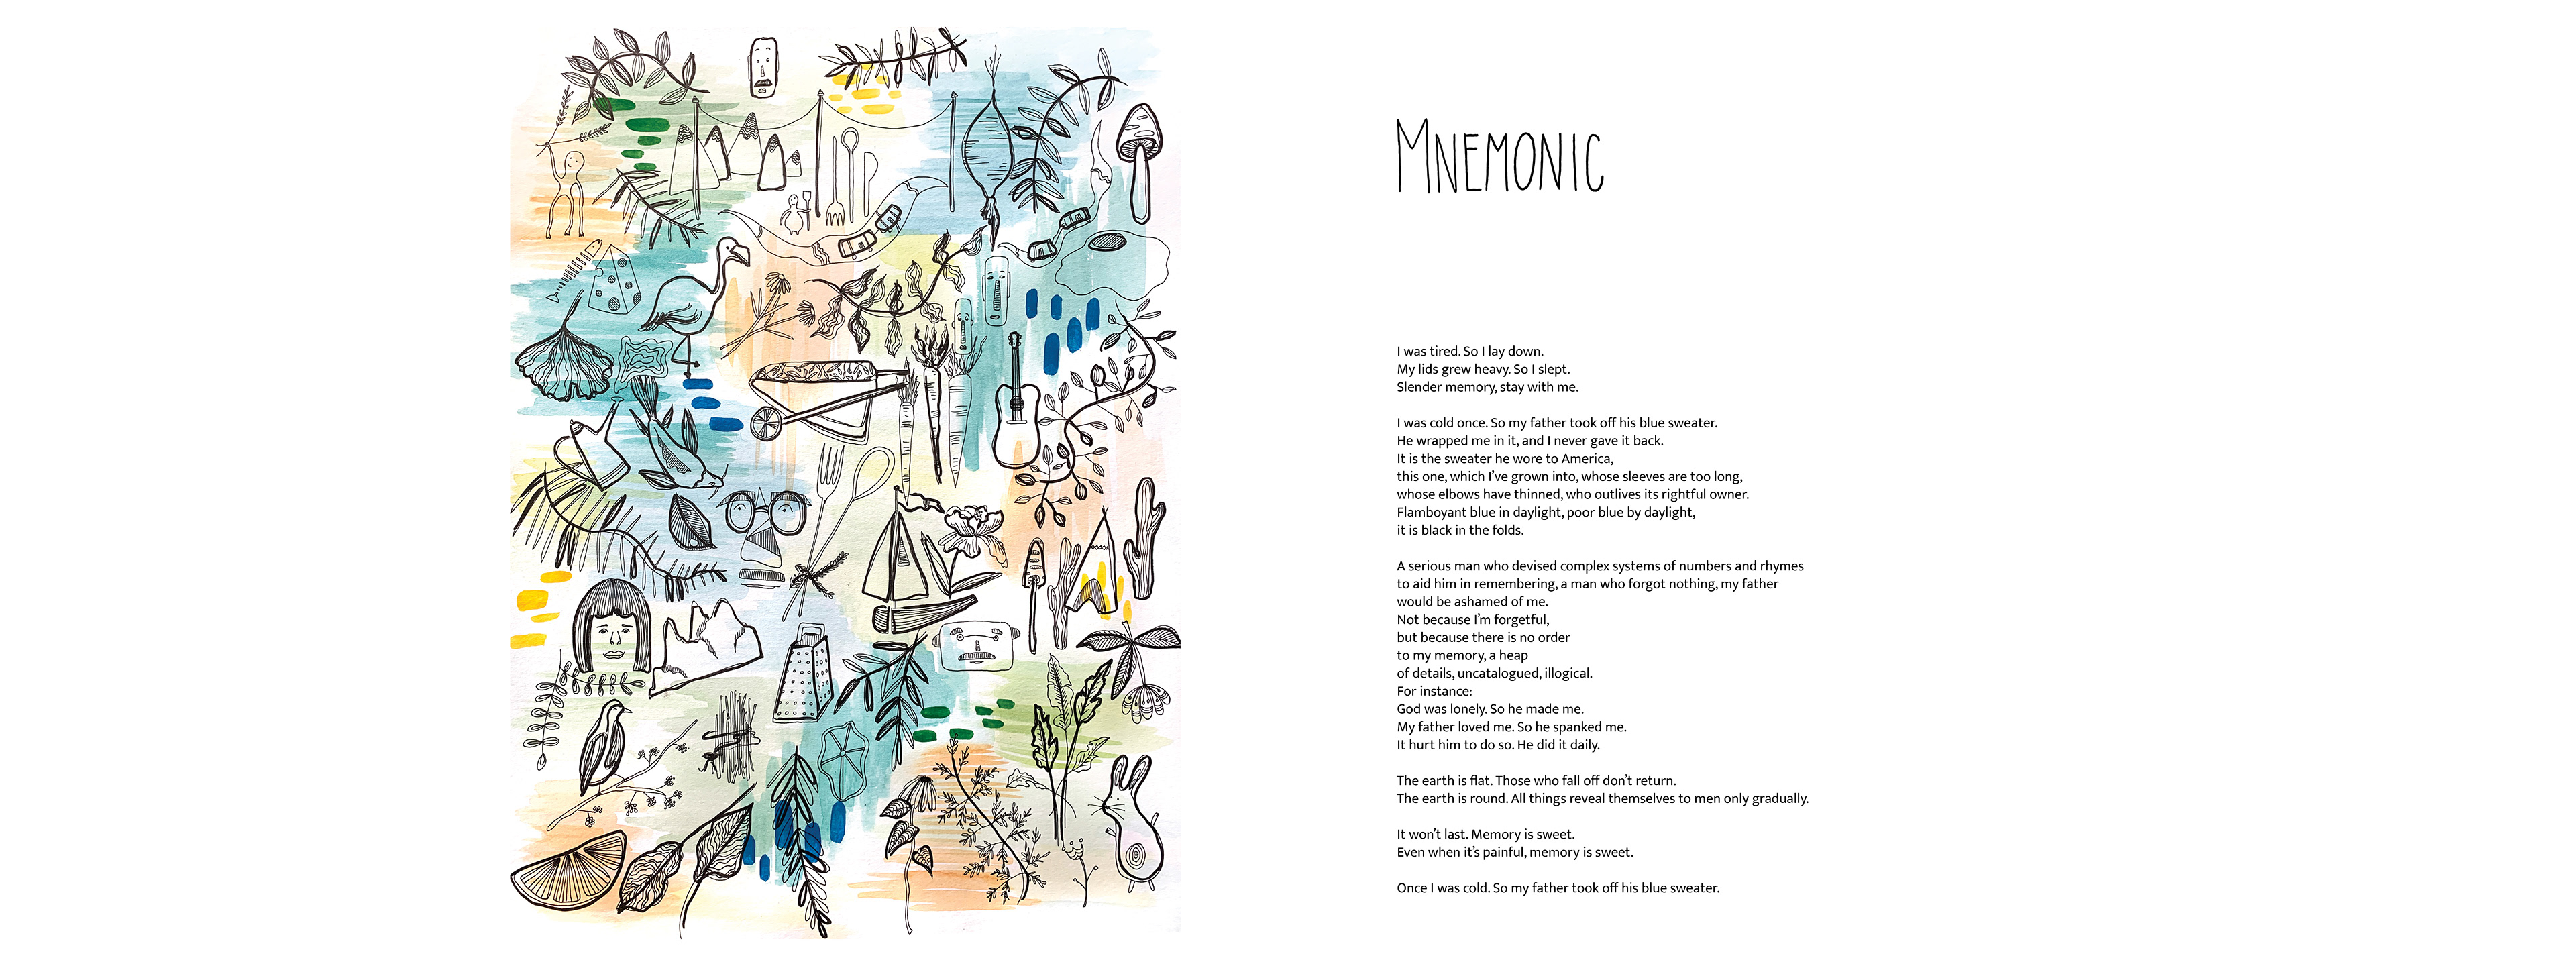 MNEMONIC
I was tired. So I lay down.
My lids grew heavy. So I slept.
Slender memory, stay with me.
I was cold once. So my father took off his blue sweater.
He wrapped me in it, and I never gave it back.
It is the sweater he wore to America,
this one, which I’ve grown into, whose sleeves are too long,
whose elbows have thinned, who outlives its rightful owner.
Flamboyant blue in daylight, poor blue by daylight,
it is black in the folds.
A serious man who devised complex systems of numbers and rhymes
to aid him in remembering, a man who forgot nothing, my father
would be ashamed of me.
Not because I’m forgetful,
but because there is no order
to my memory, a heap
of details, uncatalogued, illogical.
For instance:
God was lonely. So he made me.
My father loved me. So he spanked me.
It hurt him to do so. He did it daily.
The earth is flat. Those who fall off don’t return.
The earth is round. All things reveal themselves to men only gradually.
It won’t last. Memory is sweet.
Even when it’s painful, memory is sweet.
Once I was cold. So my father took off his blue sweater.